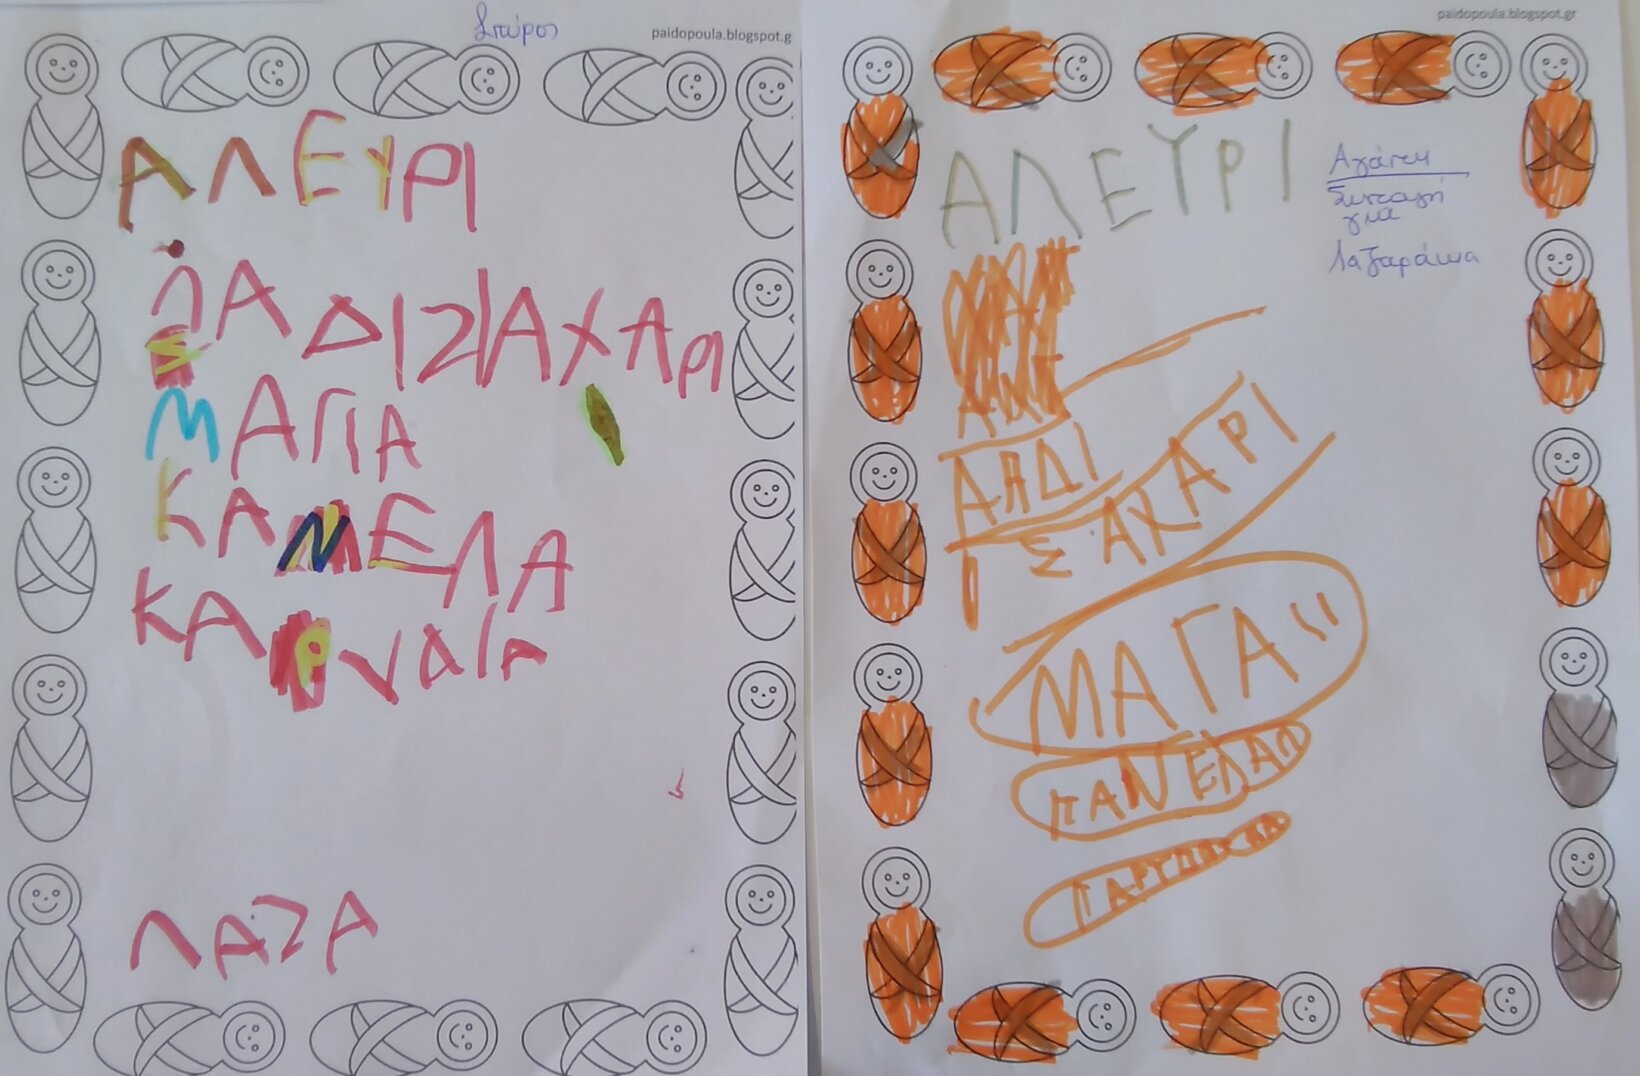 Σπύρος
paidopoula.blogspot.g
ΑΛΕΥΡΙ
ΛΑΔΙΣΑΧΑΡΙ
ΜΑΓΙΑ
ΚΑΝΕΛΑ
ΛΑΖΑ
paidopoula.blogspot.gr
ΑΛΕΥΡΙ
Αγάπη
Συνταγή
για
Λαζαράκια
ΛΑΔΙ
ΣΑΧΑΡΙ
ΜΑΓΑ